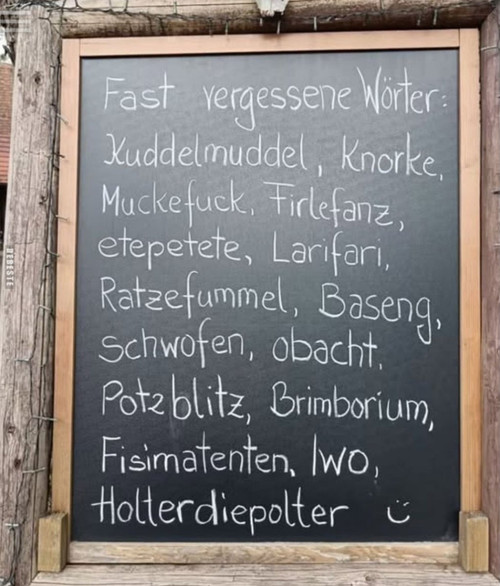 Fast vergessene Wörter:
Kuddelmuddel, Knorke,
Muckefuck, Firlefanz,
etepetete, Larifari,
Ratzefummel, Baseng,
schwofen, obacht,
Potzblitz, Brimborium,
Fisimatenten, Iwo,
Holterdiepolter :)
DEBESTE